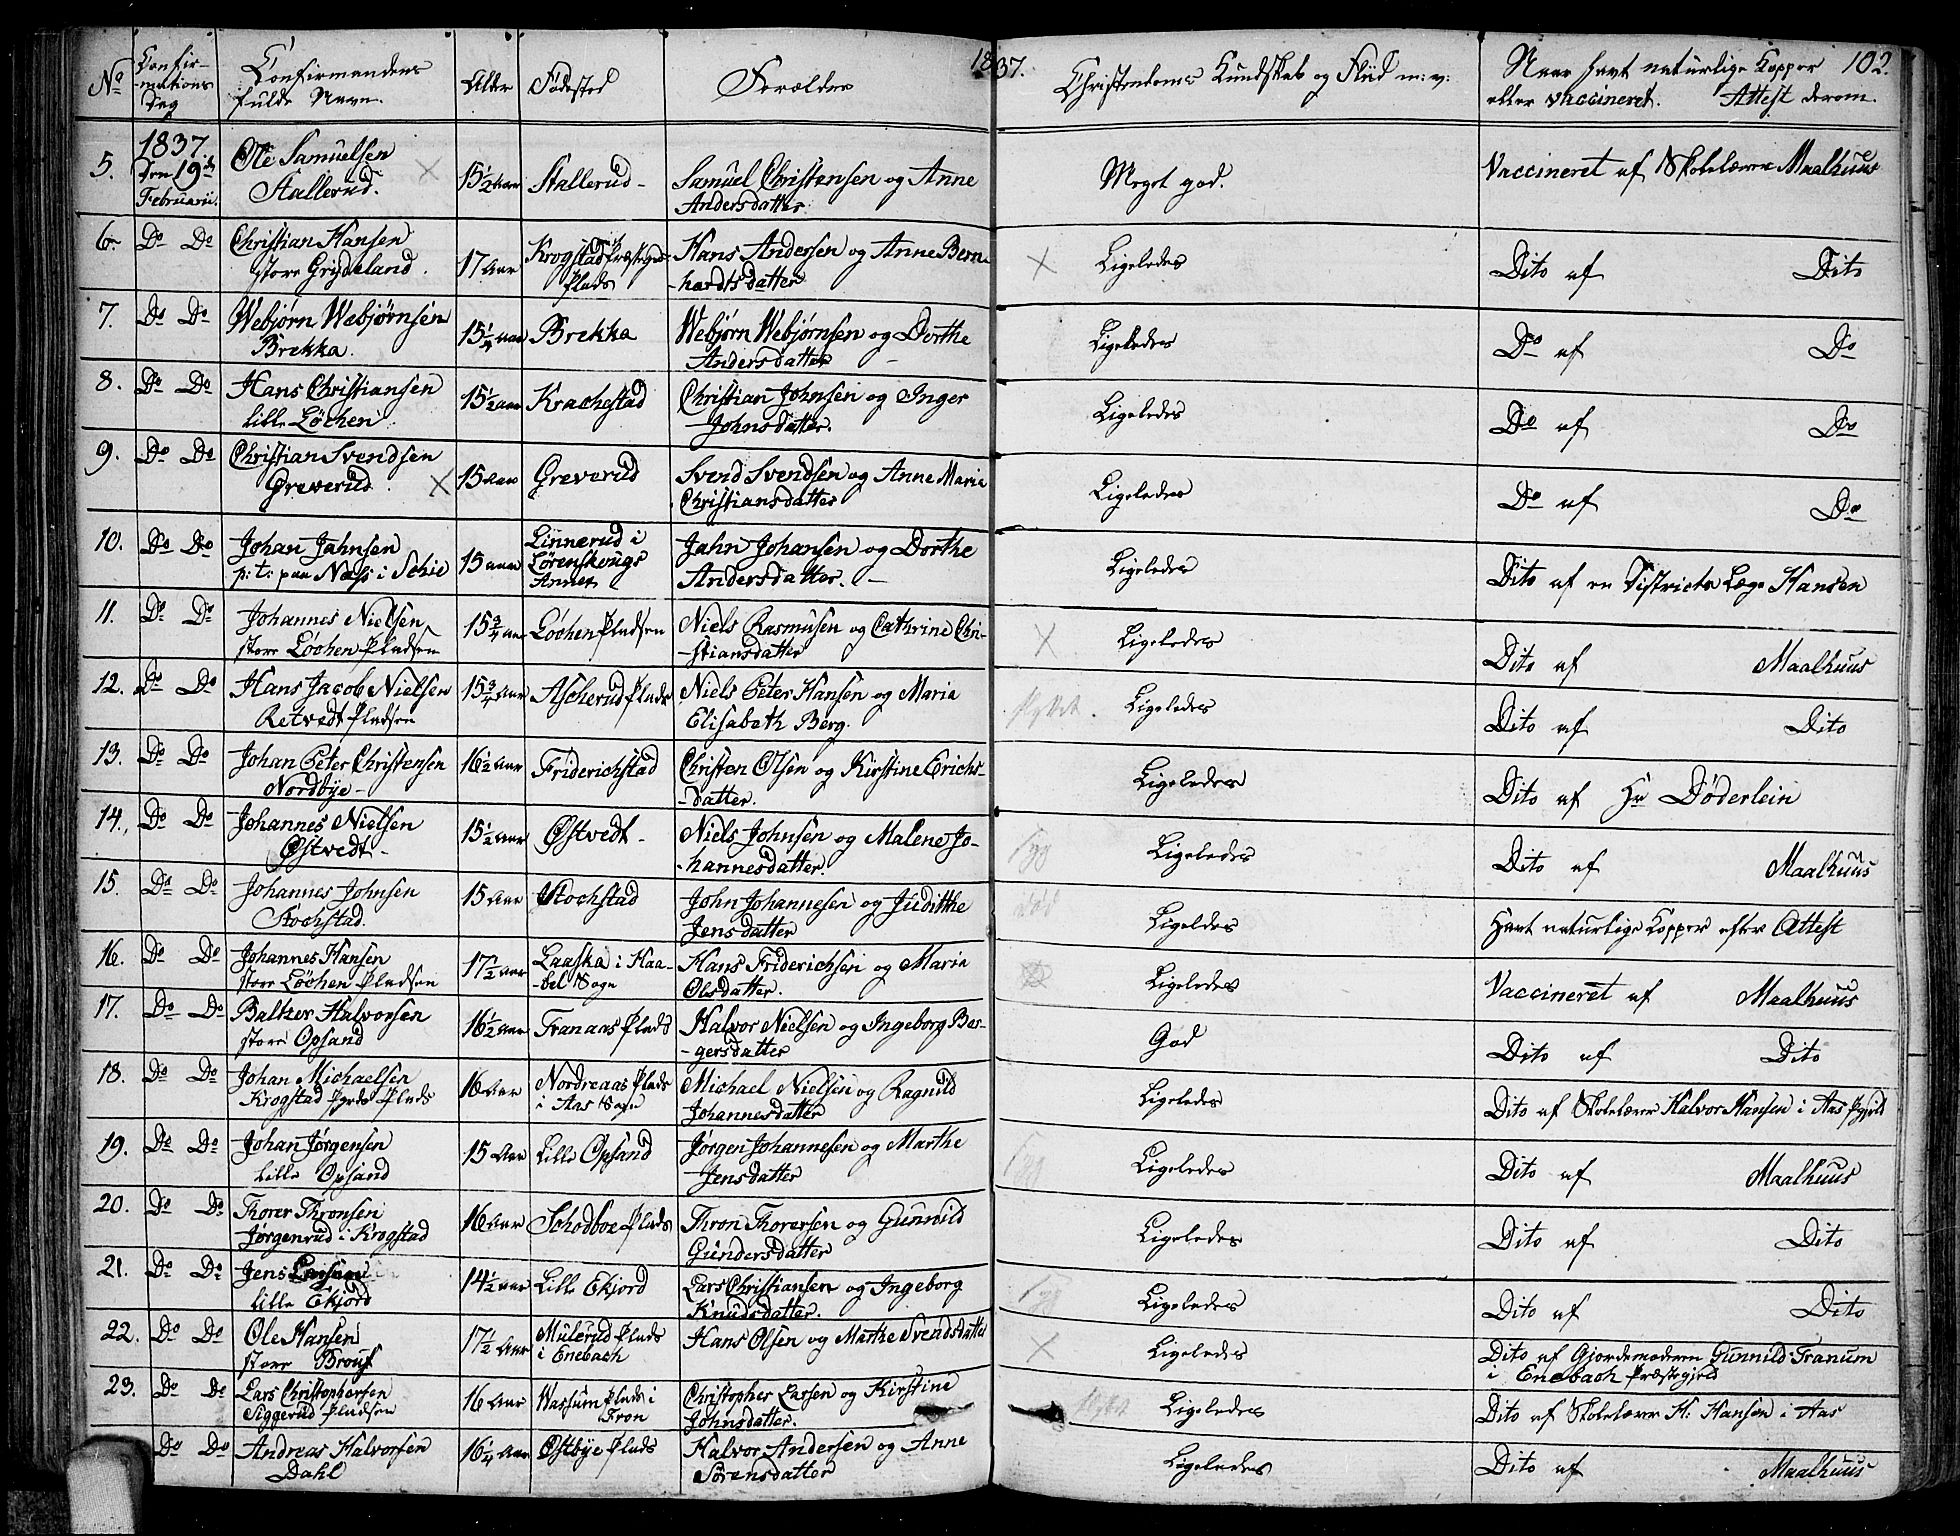 1837. 102.
No Confirmations Dag Confirmandens fulde Navn. Alder Fødested Forældre Christendoms Kundskab og Flid m: v: Naar havt naturlige Kopper eller vaccineret. Attest derom.
5. 1837 Den 19de Februarii. Ole Samuelsen Stallerud. 15 1/2 Aar Stallerud - Samuel Christensen og Anne Andersdatter Meget god. Vaccineret af Skolelærer Maalhuus
6. Do Do Christian Hansen store Grydeland. 17 Aar Krogstad Præstegrds Plads Hans Andersen og Anne Bernhardtsdatter Ligeledes Dito af Dito
7. Do Do Webjørn Webjørnsen Brekka. 15 1/4 Aar Brekka Webjørn Webjørnsen og Dorthe Andersdatter Ligeledes Do af Do
8. Do Do Hans Christiansen lille Løchen 15 1/2 Aar Krachestad Christian Johnsen og Inger Johnsdatter. Ligeledes Do af Do
9. Do Do Christian Svendsen Greverud. 15 Aar Greverud Svend Svendsen og Anne Maria Christiansdatter Ligeledes Do af Do
10. Do Do Johan Jahnsen p: t: paa Næss i Schie 15 Aar Linnerud i Lørenskougs Annex Jahn Johansen og Dorthe Andersdatter. - Ligeledes Dito af en Districts Læge Hansen
11. Do Do Johannes Nielsen store Løchen Pladsen 15 3/4 Aar Løchen Pladsen Niels Rasmusen og Cathrine Christiansdatter Ligeledes Dito af Maalhuus
12. Do Do Hans Jacob Nielsen Retvedt Pladsen 15 3/4 Aar Ascherud Plads Niels Peter Hansen og Maria Elisabeth Berg. flyttet. Ligeledes Dito af Dito
13. Do Do Johan Peter Christensen Nordbye - 16 1/2 Aar Friderichstad Christen Olsen og Kirstine Erichsdatter. Ligeledes Dito af Hr Døderlein
14. Do Do Johannes Nielsen Østvedt - 15 1/2 Aar Østvedt - Niels Johnsen og Malene Johannesdatter. Ligeledes Dito af Maalhuus
15. Do Do Johannes Johnsen Stochstad. 15 Aar Stochstad John Johannesen og Juditthe Jensdatter død Ligeledes Havt naturlige Kopper efter Attest
16. Do Do Johannes Hansen store Løchen Pladsen 17 1/2 Aar Laaska i Haabel Sogn Hans Friderichsen og Maria Olsdatter. Ligeledes Vaccineret af Maalhuus
17. Do Do Baltzer Halvorsen store Opsand 16 1/2 Aar Franaas Plads Halvor Nielsen og Ingeborg Børgersdatter God Dito af Dito
18. Do Do Johan Michaelsen Krogstad Pgrds Plads 16 Aar Nordreaas Plads i Aas Sogn Michael Nielsen og Ragnild Johannesdatter Ligeledes Dito af Skolelærer Halvor Hansen i Aas Pgjeld
19. Do Do Johan Jørgensen Lille Opsand 15 Aar Lille Opsand Jørgen Johannesen og Marthe Jensdatter Ligeledes Dito af Maalhuus
20. Do Do Thorer Thronsen Jørgenrud i Krogstad 16 Aar Schodboe Plads Thron Thorersen og Gunnild Gundersdatter Ligeledes Dito af Dito
21. Do Do Jens Larsen lille Ekjord 14 1/2 Aar Lille Ekjord Lars Christiansen og Ingeborg Knudsdatter. Ligeledes Dito af Dito
22. Do Do Ole Hansen store Brouf 17 1/2 Aar Mulerud Plads i Enebach Hans Olsen og Marthe Svendsdatter Ligeledes Dito af Gjordemoderen Gunnild Franum i Enebach Præstegjeld
23. Do Do Lars Christophersen Siggerud Pladsen 16 Aar Wassum Plads i Fron Christopher Larsen og Kirstine Johnsdatter. flyttet Ligeledes Dito af Skolelærer H: Hansen i Aas
Do Do Andreas Halvorsen Dahl 16 1/4 Aar Østbye Plads Halvor Andersen og Anne Sørensdatter Ligeledes Dito af Maalhuus